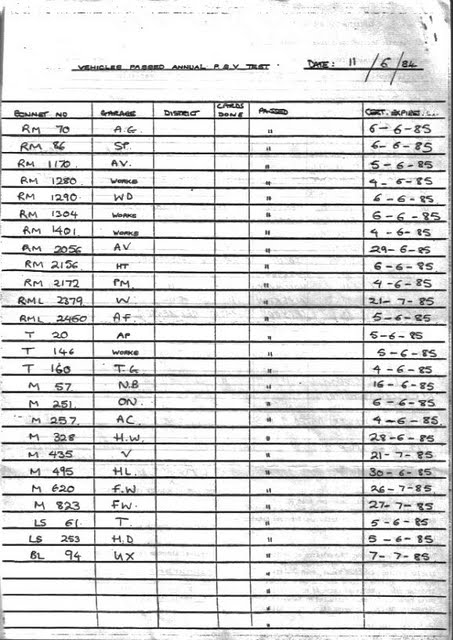 VEHICLES PASSED ANNUAL P.S.V TEST DATE: 11/6/84
BONNET NO GARAGE DISTRICT CARDS DONE PASSED CERT. EXPIRES
RM 70 A.G. " 6-6-85
RM 86 SP. " 6-6-85
RM 1170 AV. " 5-6-85
RM 1280 WORKS " 4-6-85
RM 1290 WD " 6-6-85
RM 1304 WORKS " 6-6-85
RM 1401 WORKS " 4-6-85
RM 2056 AV " 29-6-85
RM 2156 HT " 6-6-85
RM 2172 PM " 4-6-85
RML 2379 W " 21-7-85
RML 2460 AF. " 5-6-85
T 20 AP " 5-6-85
T 146 WORKS " 5-6-85
T 160 T.G. " 4-6-85
M 57 N.B " 16-6-85
M 251 ON. " 6-6-85
M 257 AC. " 4-6-85
M 328 H.W. " 28-6-85
M 435 V " 21-7-85
M 495 HL. " 30-6-85
M 620 F.W " 26-7-85
M 823 FW. " 27-7-85
LS 61 T. " 5-6-85
LS 253 H.D " 5-6-85
BL 94 UX " 7-7-85
"
"
"
"